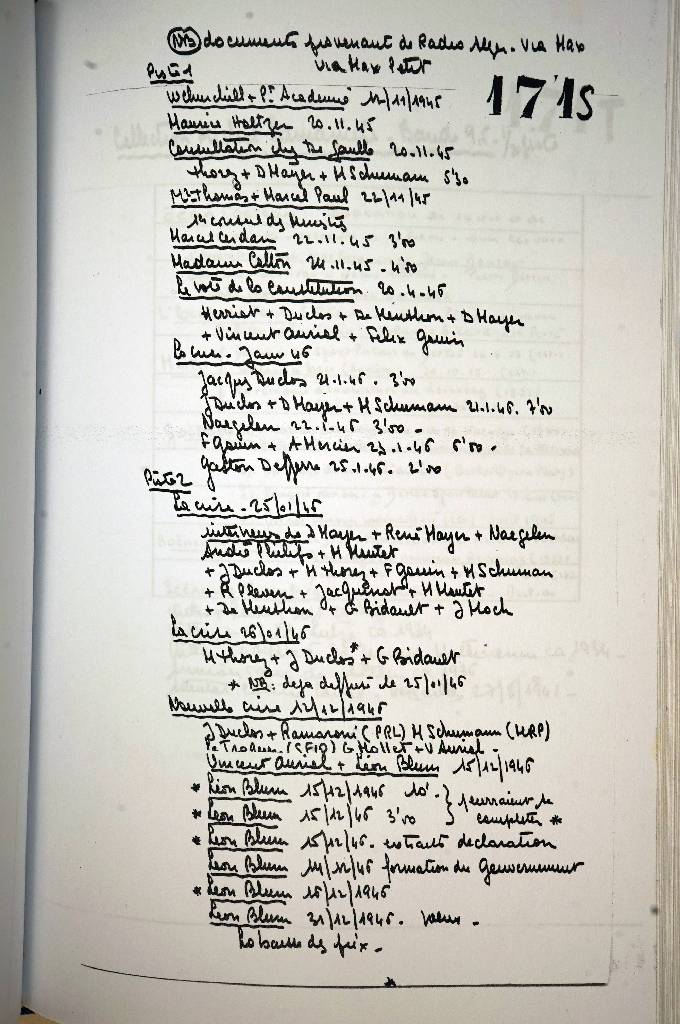 NB documents provenant de Radio Alger. Via Max
via Max Petit
171S
Piste 1
W Churchill + Pt Academie 12/11/1945
Maurice Holtzer 20.11.45
Consultation chez De Gaulle 20.11.45
Thorez + D Mayer + M Schumann 5'30
Mr Thomas + Marcel Paul 22/11/45
1er conseil des Ministres
Marcel Cerdan 22.11.45 3'00
Madame Cotton 24.11.45 - 4'00
Le vote de la Constitution 20.4.46
Herriot + Duclos + De Menthon + D Mayer
+ Vincent Auriol + Felix Gouin
La crise - Janv 46
Jacques Duclos 21.1.46. 3'00
J Duclos + D Mayer + M Schumann 21.1.46. 7'00
Naegelen 22.1.46 3'00 -
F Gouin + A Mercier 23.1.46 6'00 -
Gaston Defferre 25.1.46. 2'00
Piste 2
La crise - 25/01/46
interviews de D Mayer + René Mayer + Naegelen
André Philip + M Moutet
+ J Duclos + M Thorez + F Gouin + M Schuman
+ R Pleven + Jacquinot + M Moutet
+ De Menthon + G Bidault + J Moch
La crise 26/01/46
M Thorez + J Duclos* + G Bidault
* NB: deja diffusé le 25/01/46
Nouvelle crise 12/12/1946
J Duclos + Ramaroni (PRL) M Schumann (MRP)
(SFIO) G Mollet + V Auriol -
Vincent Auriol + Léon Blum 15/12/1946
* Léon Blum 15/12/1946 10'. } pourraient se
* Léon Blum 15/12/46 3'00 } completer *
* Léon Blum 15/12/46. extraits declaration
Léon Blum 14/12/46 formation du Gouvernement
* Léon Blum 16/12/1946
Léon Blum 31/12/1946. voeux -
La baisse des prix -